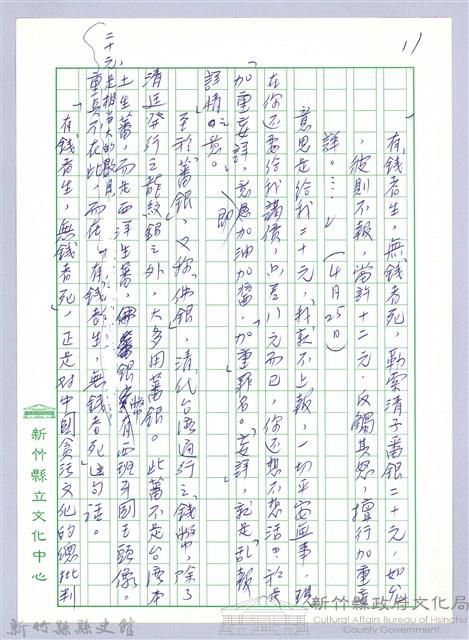 11
有錢者生,無錢者死,勒索清子番銀二十元,如
,彼則不報,當許十二元。反觸其怒,擅行加重
詳。……」(4月25日)
意思是給我二十元,我就不上報,一切平安無事,現
在你還要給我講價,只是八元而已,你還想不想活?於是
加重妄詳,意思加油加醬,加重罪名。「妄詳」,就是亂報
詳情之意。
至於「番銀」,又稱「佛銀」,清代台灣通行之錢幣中,除了
清廷發行之龍紋銀之外,大多用蕃銀。此蕃不是台灣本
土生蕃,而是西洋生蕃,蕃銀幣有西班牙國王頭像。
二十元是相當大的數目
重點不在此,而在「有錢者生,無錢者死」這句話。
「有錢者生,無錢者死」,正是對中國貪污文化的總批判
新竹縣立文化中心
新竹縣政府文化局
Cultural Affairs Bureau of Hsinchu
County Government
新竹縣縣史館